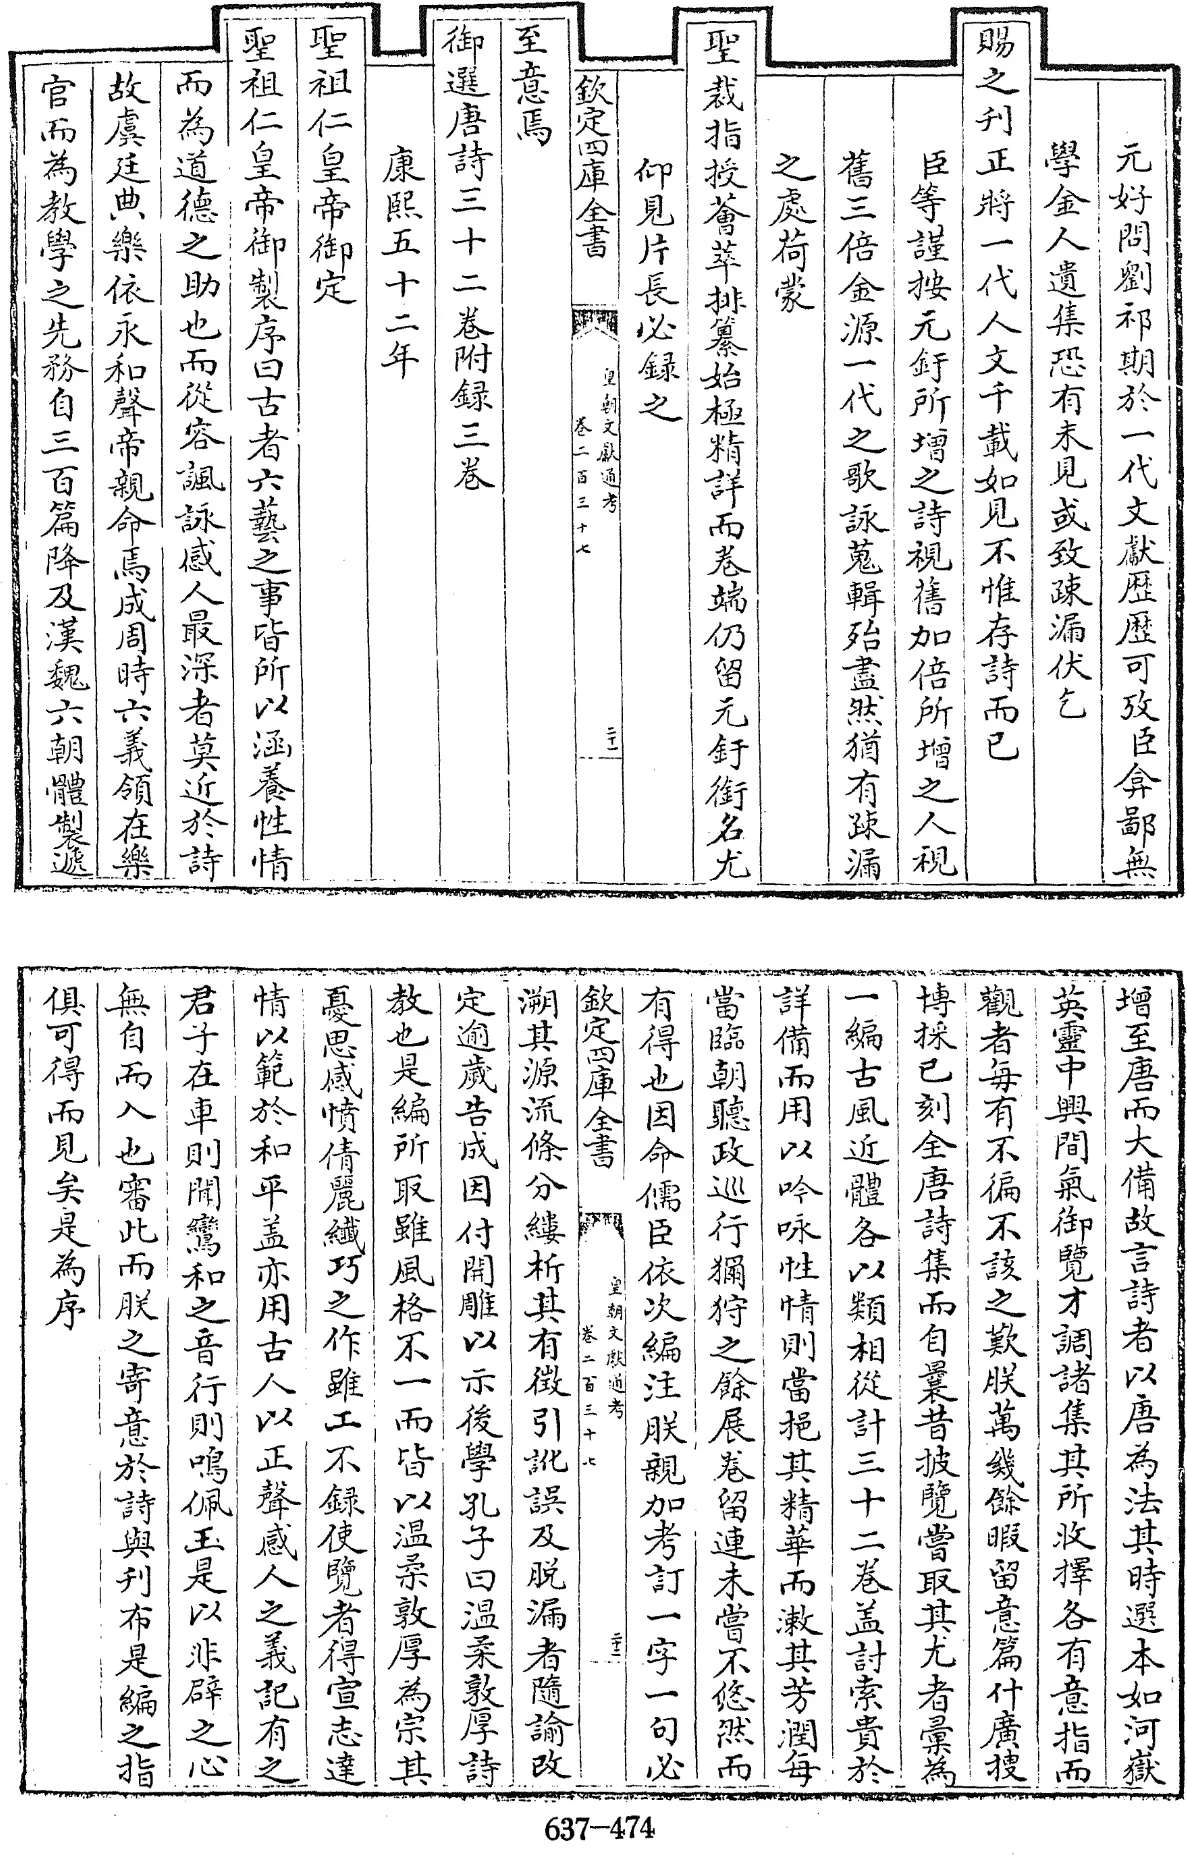 元好問劉祁期於一代文獻歷歷可攷臣弇鄙無
學金人遺集恐有未見或致疎漏伏乞
賜之刊正將一代人文千載如見不惟存詩而已
臣等謹按元釪所增之詩視舊加倍所增之人視
舊三倍金源一代之歌詠蒐輯殆盡然猶有疎漏
之處荷蒙
聖裁指授薈萃排纂始極精詳而卷端仍留元釪銜名尤
仰見片長必録之
欽定四庫全書
皇朝文獻通考
卷二百三十七
二十一
至意焉
御選唐詩三十二卷附録三卷
康熙五十二年
聖祖仁皇帝御定
聖祖仁皇帝御製序曰古者六藝之事皆所以涵養性情
而為道德之助也而從容諷詠感人最深者莫近於詩
故虞廷典樂依永和聲帝親命焉成周時六義領在樂
官而為教學之先務自三百篇降及漢魏六朝體製遞
增至唐而大備故言詩者以唐為法其時選本如河嶽
英靈中興間氣御覽才調諸集其所收擇各有意指而
觀者每有不徧不該之歎朕萬幾餘暇留意篇什廣搜
博採已刻全唐詩集而自曩昔披覽嘗取其尤者彙為
一編古風近體各以類相從計三十二卷蓋討索貴於
詳備而用以吟咏性情則當挹其精華而漱其芳潤每
當臨朝聽政巡行獮狩之餘展卷留連未嘗不悠然而
有得也因命儒臣依次編注朕親加考訂一字一句必
欽定四庫全書
皇朝文獻通考
卷二百三十七
二十二
溯其源流條分縷析其有徵引訛誤及脱漏者隨諭改
定逾歲告成因付開雕以示後學孔子曰温柔敦厚詩
教也是編所取雖風格不一而皆以温柔敦厚為宗其
憂思感憤倩麗纖巧之作雖工不録使覽者得宣志達
情以範於和平盖亦用古人以正聲感人之義記有之
君子在車則聞鸞和之音行則鳴佩玉是以非辟之心
無自而入也審此而朕之寄意於詩與刊布是編之指
俱可得而見矣是為序
637-474